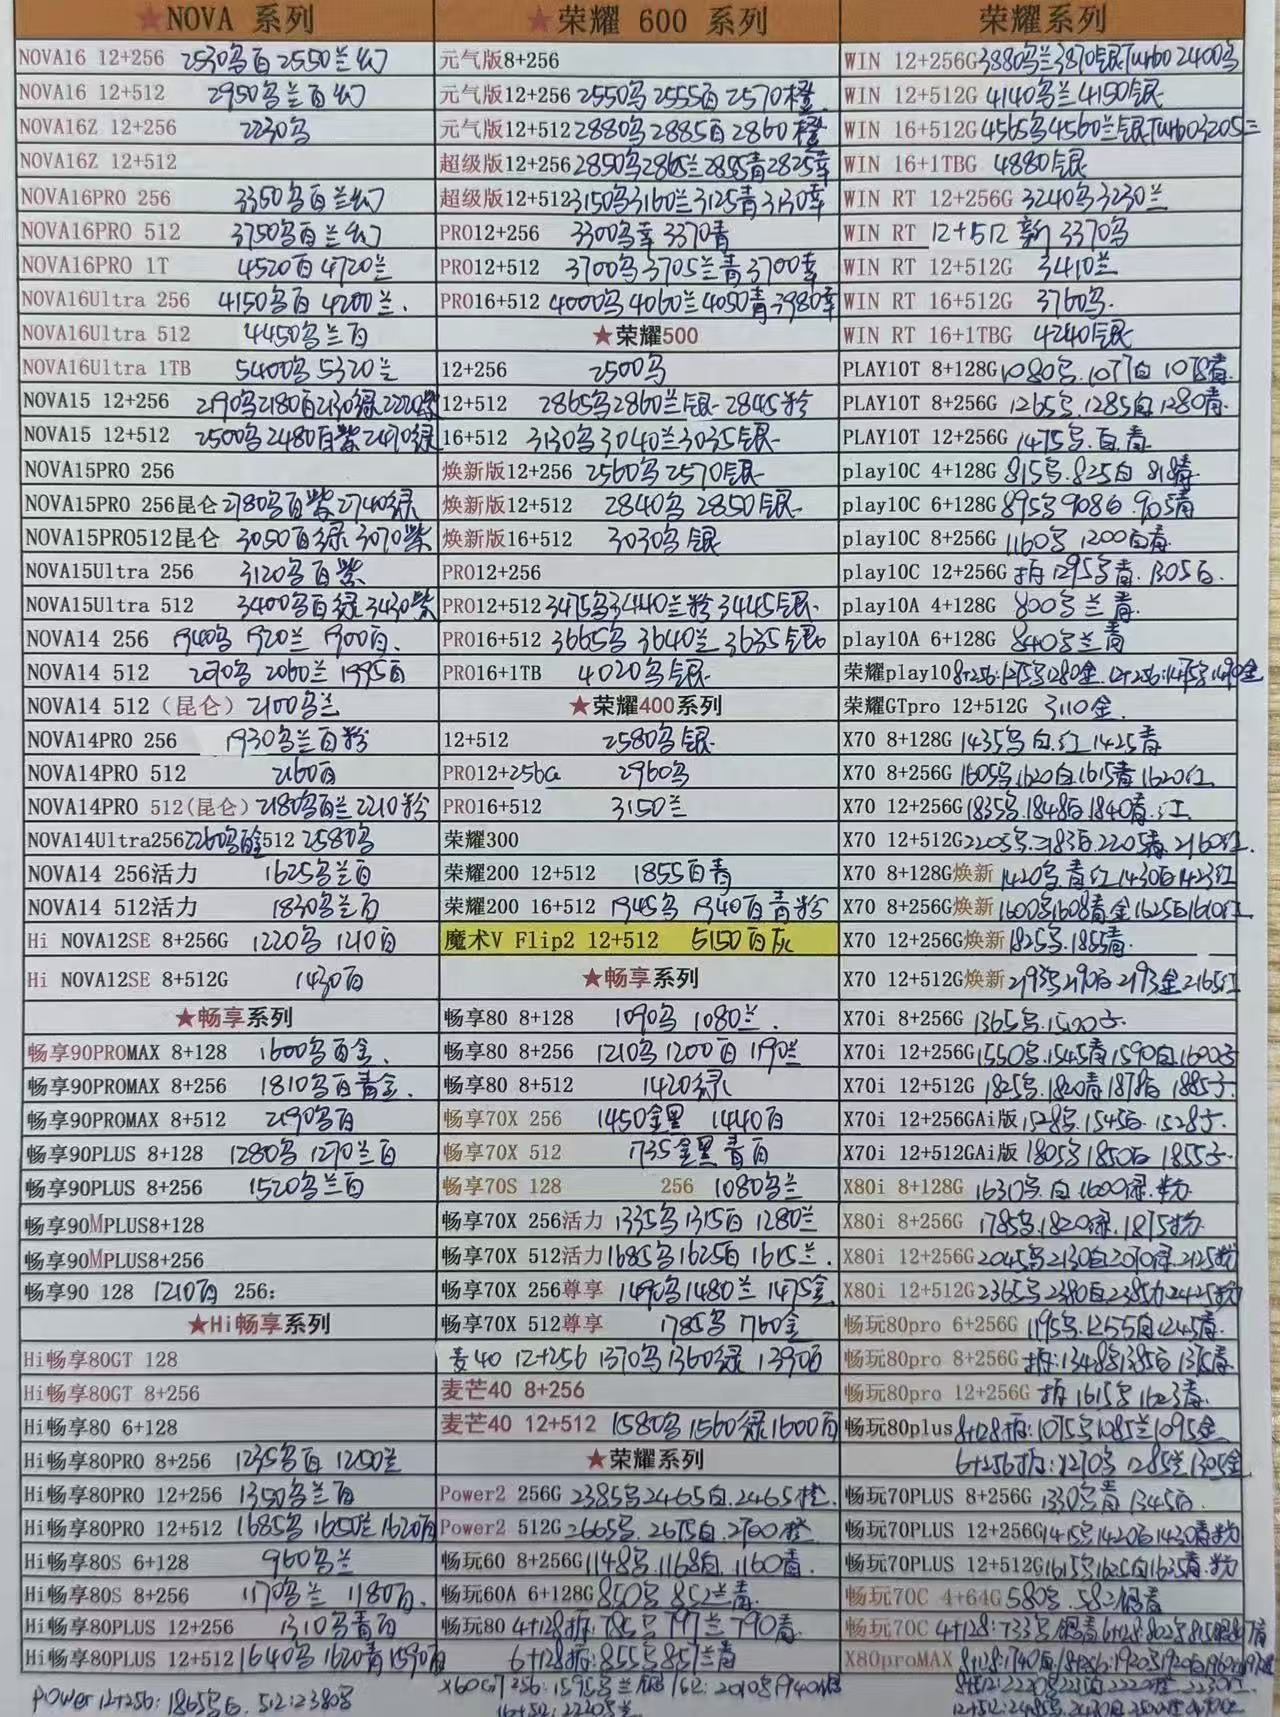 ★NOVA 系列
NOVA16 12+256 2530乌白 2550兰幻
NOVA16 12+512 2950乌兰白幻
NOVA16Z 12+256 2230乌
NOVA16Z 12+512
NOVA16PRO 256 3350乌白兰幻
NOVA16PRO 512 3750乌白兰幻
NOVA16PRO 1T 4520白 4720兰
NOVA16Ultra 256 4150乌白 4200兰.
NOVA16Ultra 512 4450乌兰白
NOVA16Ultra 1TB 5400乌 5320兰
NOVA15 12+256 2190乌2180白2130绿2220紫
NOVA15 12+512 2500乌2480白紫2470绿
NOVA15PRO 256
NOVA15PRO 256昆仑 2780乌白紫 2740绿
NOVA15PRO512昆仑 3050白绿 3070紫
NOVA15Ultra 256 3120乌白紫
NOVA15Ultra 512 3400乌白绿 3430紫
NOVA14 256 1940乌 1920兰 1900白.
NOVA14 512 2090乌 2060兰 1995白
NOVA14 512（昆仑）2100乌兰
NOVA14PRO 256 1930乌兰白粉
NOVA14PRO 512 2160白
NOVA14PRO 512(昆仑) 2180乌白兰 2210粉
NOVA14Ultra256 2260乌白金512 2580乌
NOVA14 256活力 1625乌兰白
NOVA14 512活力 1830乌兰白
Hi NOVA12SE 8+256G 1220乌 1210白
Hi NOVA12SE 8+512G 1430白
★畅享系列
畅享90PROMAX 8+128 1600乌白金.
畅享90PROMAX 8+256 1810乌白青金.
畅享90PROMAX 8+512 2190乌白
畅享90PLUS 8+128 1280乌 1270兰白
畅享90PLUS 8+256 1520乌兰白
畅享90MPLUS8+128
畅享90MPLUS8+256
畅享90 128 1210白 256:
★Hi畅享系列
Hi畅享80GT 128
Hi畅享80GT 8+256
Hi畅享80 6+128
Hi畅享80PRO 8+256 1235乌白 1250兰
Hi畅享80PRO 12+256 1350乌兰白
Hi畅享80PRO 12+512 1685乌 1650兰 1620白
Hi畅享80S 6+128 960乌兰
Hi畅享80S 8+256 1170乌兰 1180白.
Hi畅享80PLUS 12+256 1310乌青白
Hi畅享80PLUS 12+512 1640乌 1620青 1590白
Power 12+256: 1865乌白. 512:2380乌
★荣耀 600 系列
元气版8+256
元气版12+256 2550乌 2555白 2570橙
元气版12+512 2880乌 2885白 2860橙
超级版12+256 2850乌2865兰2855青2825幸
超级版12+512 3150乌3160兰3125青3130幸
PRO12+256 3300乌幸 3370青
PRO12+512 3700乌 3705兰青 3700幸
PRO16+512 4000乌 4060兰 4050青 3980幸
★荣耀500
12+256 2500乌
12+512 2865乌2860兰银 2845粉
16+512 3130乌 3040兰 3035银
焕新版12+256 2560乌 2570银
焕新版12+512 2840乌 2850银
焕新版16+512 3030乌银
PRO12+256
PRO12+512 3475乌3440兰粉 3445银
PRO16+512 3665乌 3640兰 3635银
PRO16+1TB 4020乌银
★荣耀400系列
12+512 2580乌银
PRO12+256G 2960乌
PRO16+512 3150兰
荣耀300
荣耀200 12+512 1855白青
荣耀200 16+512 1945乌 1940白青粉
魔术V Flip2 12+512 5150白灰
★畅享系列
畅享80 8+128 1090乌 1080兰.
畅享80 8+256 1210乌 1200白 1190兰
畅享80 8+512 1420绿
畅享70X 256 1450金黑 1440白
畅享70X 512 1735金黑青白
畅享70S 128 256 1080乌兰
畅享70X 256活力 1335乌1315白 1280兰
畅享70X 512活力 1685乌 1625白 1615兰.
畅享70X 256尊享 1490乌1480兰 1475金
畅享70X 512尊享 1785乌 1760金
麦40 12+256 1370乌 1360绿 1390白
麦芒40 8+256
麦芒40 12+512 1580乌 1560绿 1600白
★荣耀系列
Power2 256G 2385乌2465白.2465橙.
Power2 512G 2665乌. 2675白.2700橙
畅玩60 8+256G 1148乌.1168白. 1160青.
畅玩60A 6+128G 850乌 852兰青
畅玩80 4+128拆:785乌 797兰 790青.
6+128拆:855乌 857兰青
荣耀系列
WIN 12+256G 3880乌兰3870银Turbo 2400乌
WIN 12+512G 4140乌兰 4150银
WIN 16+512G 4565乌4560兰银Turbo3205兰
WIN 16+1TBG 4880银
WIN RT 12+256G 3240乌 3230兰
WIN RT 12+512 新 3370乌
WIN RT 12+512G 3410兰
WIN RT 16+512G 3760乌.
WIN RT 16+1TBG 4240银
PLAY10T 8+128G 1080乌.1077白 1078青.
PLAY10T 8+256G 1265乌.1285白1280青.
PLAY10T 12+256G 1475乌.白.青
play10C 4+128G 815乌.825白 818青
play10C 6+128G 895乌908白.905青
play10C 8+256G 1160乌 1200白青.
play10C 12+256G 拆 1295乌青. 1305白.
play10A 4+128G 800乌兰青
play10A 6+128G 840乌兰青
荣耀play10 8+256:1275乌1280金.12+256:1475乌1490金
荣耀GTpro 12+512G 3110金.
X70 8+128G 1435乌白.红 1425青
X70 8+256G 1605乌1620白1615青 1620红
X70 12+256G 1835乌.1848白.1840青.红
X70 12+512G 2205乌.2183白.2205青.2160红.
X70 8+128G焕新 1420乌.青红1430白1423红
X70 8+256G焕新 1600乌1608青金1625白1610红
X70 12+256G焕新 1825乌.1855青.
X70 12+512G焕新 2193乌2190白 2193金 2165红
X70i 8+256G 1365乌.1500子.
X70i 12+256G 1550乌.1545青1590白.1600子
X70i 12+512G 1825乌.1820青 1878白 1885子
X70i 12+256GAi版 1528乌.1545白.1528子.
X70i 12+512GAi版 1805乌1850白 1855子.
X80i 8+128G 1631乌.白 1600绿.粉
X80i 8+256G 1785乌.1820绿.1875粉
X80i 12+256G 2045乌2130白2090绿.2125粉
X80i 12+512G 2365乌2380白2385 2425粉
畅玩80pro 6+256G 1195乌.1255白1245青.
畅玩80pro 8+256G 拆:1348乌1385白 1375青.
畅玩80pro 12+256G 拆 1615乌 1623青.
畅玩80plus 8+128拆:1075乌1085兰1095金
6+256拆:1270乌 1285兰1305金
畅玩70PLUS 8+256G 1330乌青 1345白.
畅玩70PLUS 12+256G 1415乌1420白1430青粉
畅玩70PLUS 12+512G 1615乌1625白1635青.粉
畅玩70C 4+64G 580乌.582银青
畅玩70C 4+128:733乌.银青6+128:802乌
X80proMAX 8+128:1740白